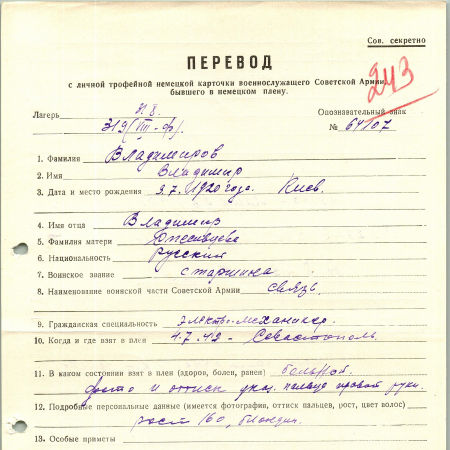 Сов. секретно
ПЕРЕВОД
с личной трофейной немецкой карточки военнослужащего Советской Армии,
бывшего в немецком плену.
243
Лагерь
319 (III-ф).
Опознавательный знак
№ 64107
1. Фамилия Владимиров
2. Имя Владимир
3. Дата и место рождения 9.7.1920 года. Киев.
4. Имя отца Владимир
5. Фамилия матери
6. Национальность русский
7. Воинское звание старшина
8. Наименование воинской части Советской Армии связь.
9. Гражданская специальность электро-механикер.
10. Когда и где взят в плен 4.7.42 - Севастополь
11. В каком состоянии взят в плен (здоров, болен, ранен) больной.
фото и оттиск указ. пальца правой руки.
12. Подробные персональные данные (имеется фотография, оттиск пальцев, рост, цвет волос)
рост 160, блондин.
13. Особые приметы